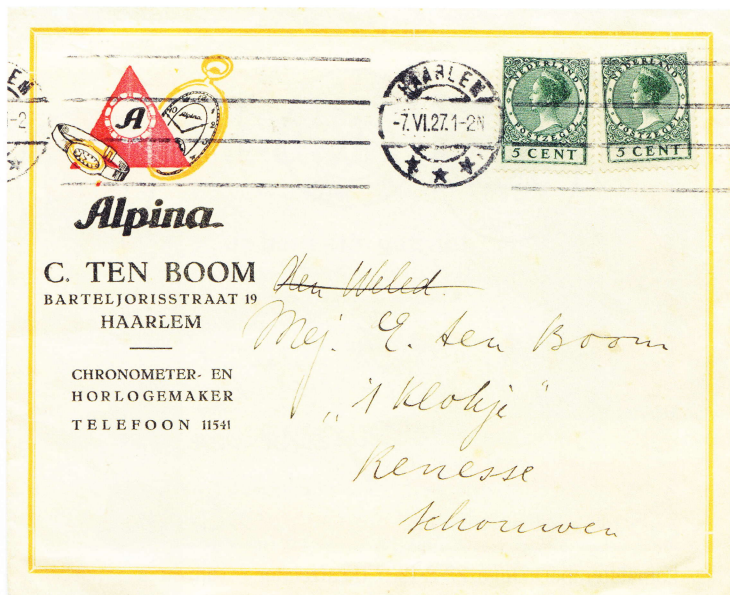 EN
-2
A
Alpina
HAARLEM
-7.VI.27.1-2N
NEDERLAND
POSTZEGEL
5 CENT
NEDERLAND
POSTZEGEL
5 CENT
Alpina
C. TEN BOOM
BARTELJORISSTRAAT 19
HAARLEM
CHRONOMETER- EN
HORLOGEMAKER
TELEFOON 11541
Den Weled.
Mej. E. ten Boom
„'t Klokje"
Renesse
Schouwen